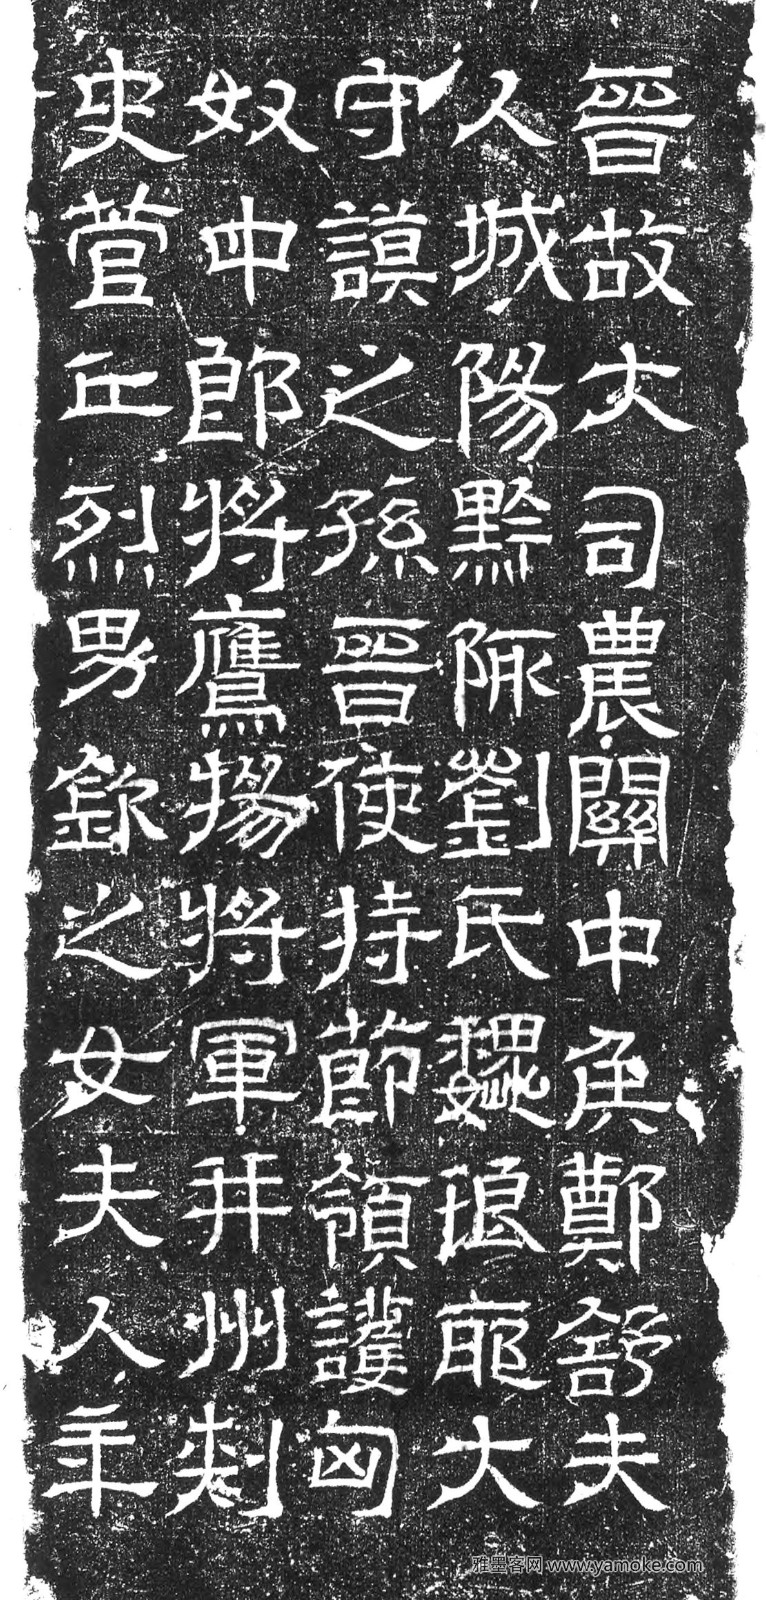 晉故大司農關中侯鄭舒夫
人城陽黔陬劉氏魏琅耶大
守謨之孫晉使持節領護匈
奴中郎將鷹揚將軍并州刺
史菅丘烈男欽之女夫人年
雅墨客网 www.yamoke.com